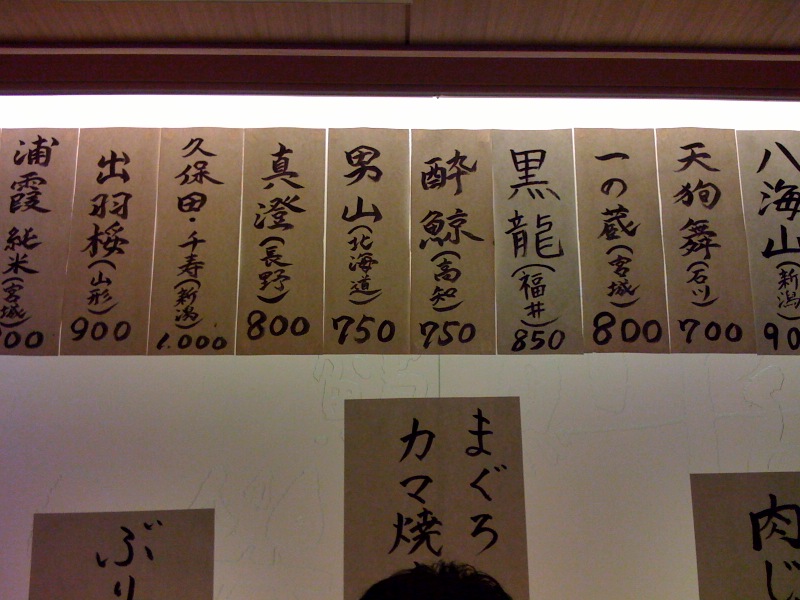 浦霞 純米(宮城)
00
出羽桜(山形)
900
久保田・千寿(新潟)
1.000
真澄(長野)
800
男山(北海道)
750
酔鯨(高知)
750
黒龍(福井)
850
一の蔵(宮城)
800
天狗舞(石川)
700
八海山(新潟)
90
ぶり
まぐろ
カマ焼
肉じ